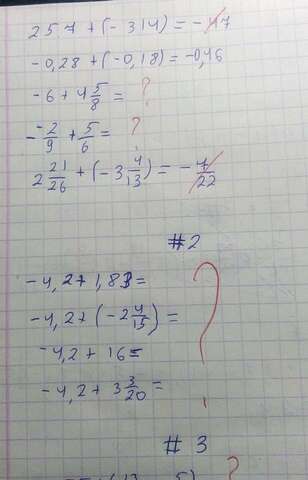 257 + (- 314) = - 47
-0,28 + (-0,18) = -0,46
-6 + 4 5/8 = ?
- 2/9 + 5/6 = ?
2 21/26 + (-3 4/13) = - 7/22
#2
-4,2 + 1,83 =
-4,2 + (-2 4/15) = ?
-4,2 + 16 =
-4,2 + 3 3/20 =
#3
?